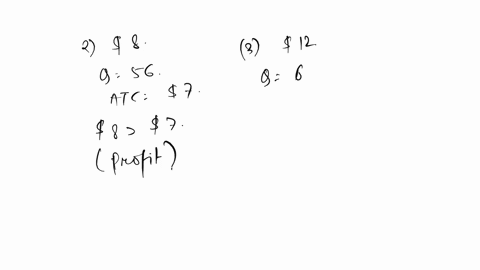 2) $ 8.
Q = 56.
ATC = $ 7.
$ 8 > $ 7.
(profit)
(3) $ 12
Q = 6